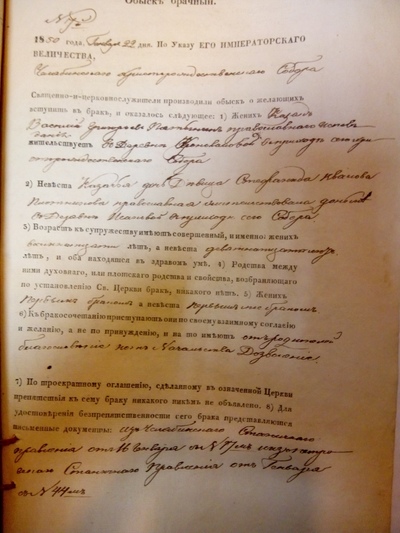 Обыскъ брачный.
№ 7й
1850 года, Генваря 22 дня. По Указу ЕГО ИМПЕРАТОРСКАГО
ВЕЛИЧЕСТВА,
Челябинскаго Христорождественскаго Собора
Священно-и-церковнослужители производили обыскъ о желающихъ
вступить въ бракъ, и оказалось слѣдующее: 1) Женихъ Казакъ
Василій Григорьевъ православнаго исповѣ
данія
жительствуетъ въ Деревнѣ въ приходѣ сего
Христорождественскаго Собора
2) Невѣста Казачья дочь Дѣвица Иванова
православнаго исповѣданія
въ Деревнѣ Исаковой въ приходѣ сего Собора
3) Возрастъ къ супружеству имѣютъ совершенный, именно: женихъ
лѣтъ, а невѣста девятнадцати
лѣтъ, и оба находятся въ здравомъ умѣ. 4) Родства между
ими духовнаго, или плотскаго родства и свойства, возбраняющаго
по установленію Св. Церкви бракъ, никакого нѣтъ. 5) Женихъ
первымъ бракомъ а невѣста первымъ же бракомъ
6) Къ бракосочетанію приступаютъ они по своему взаимному согласію
и желанію, а не по принужденію, и на то имѣютъ отъ родителей
благословеніе Начальства Дозволеніе
7) По троекратному оглашенію, сдѣланному въ означенной Церкви
препятствія къ сему браку никакого никѣмъ не объявлено. 8) Для
удостовѣренія безпрепятственности сего брака представляются
письменные документы: изъ Челябинскаго Станичнаго
правленія отъ 16 Генваря за № 17мъ
Станичнаго Правленія отъ Генваря
за № 44мъ